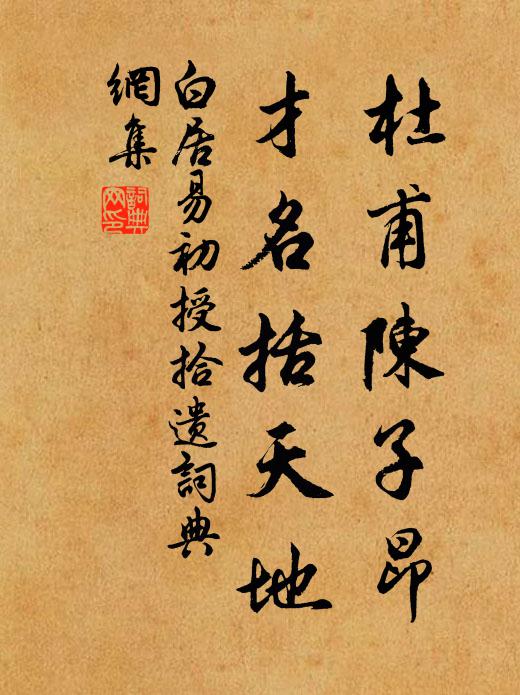 杜甫陳子昂
才名括天地
白居易初授拾遺詞典
網集
詞典
网印